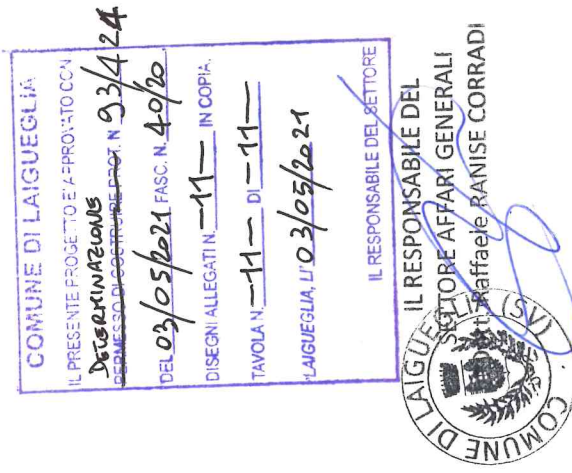 COMUNE DI LAIGUEGLIA
IL PRESENTE PROGETTO E' APPROVATO CON
DETERMINAZIONE
PERMESSO DI COSTRUIRE PROT. N. 93/424
DEL 03/05/2021 FASC. N. 40/20
DISEGNI ALLEGATI N. -11- IN COPIA.
TAVOLA N. -11- DI -11-
LAIGUEGLIA, LI' 03/05/2021
IL RESPONSABILE DEL SETTORE
IL RESPONSABILE DEL
SETTORE AFFARI GENERALI
Dott. Raffaele RANISE CORRADI
COMUNE DI LAIGUEGLIA (SV)